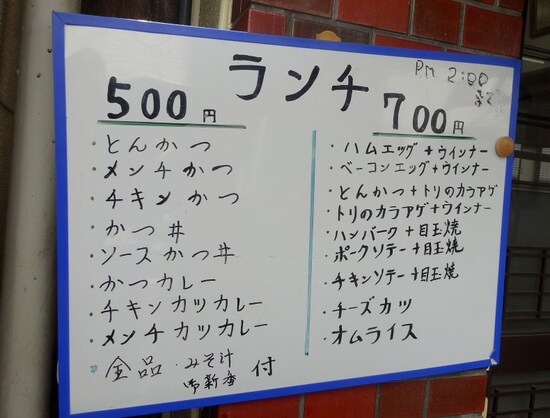 ランチ
PM 2:00
まで
500円
・とんかつ
・メンチかつ
・チキンかつ
・かつ丼
・ソースかつ丼
・かつカレー
・チキンカツカレー
・メンチカツカレー
・全品・みそ汁
・御新香
付
700円
・ハムエッグ+ウインナー
・ベーコンエッグ+ウインナー
・とんかつ+トリのカラアゲ
・トリのカラアゲ+ウインナー
・ハンバーク+目玉焼
・ポークソテー+目玉焼
・チキンソテー+目玉焼
・チーズカツ
・オムライス